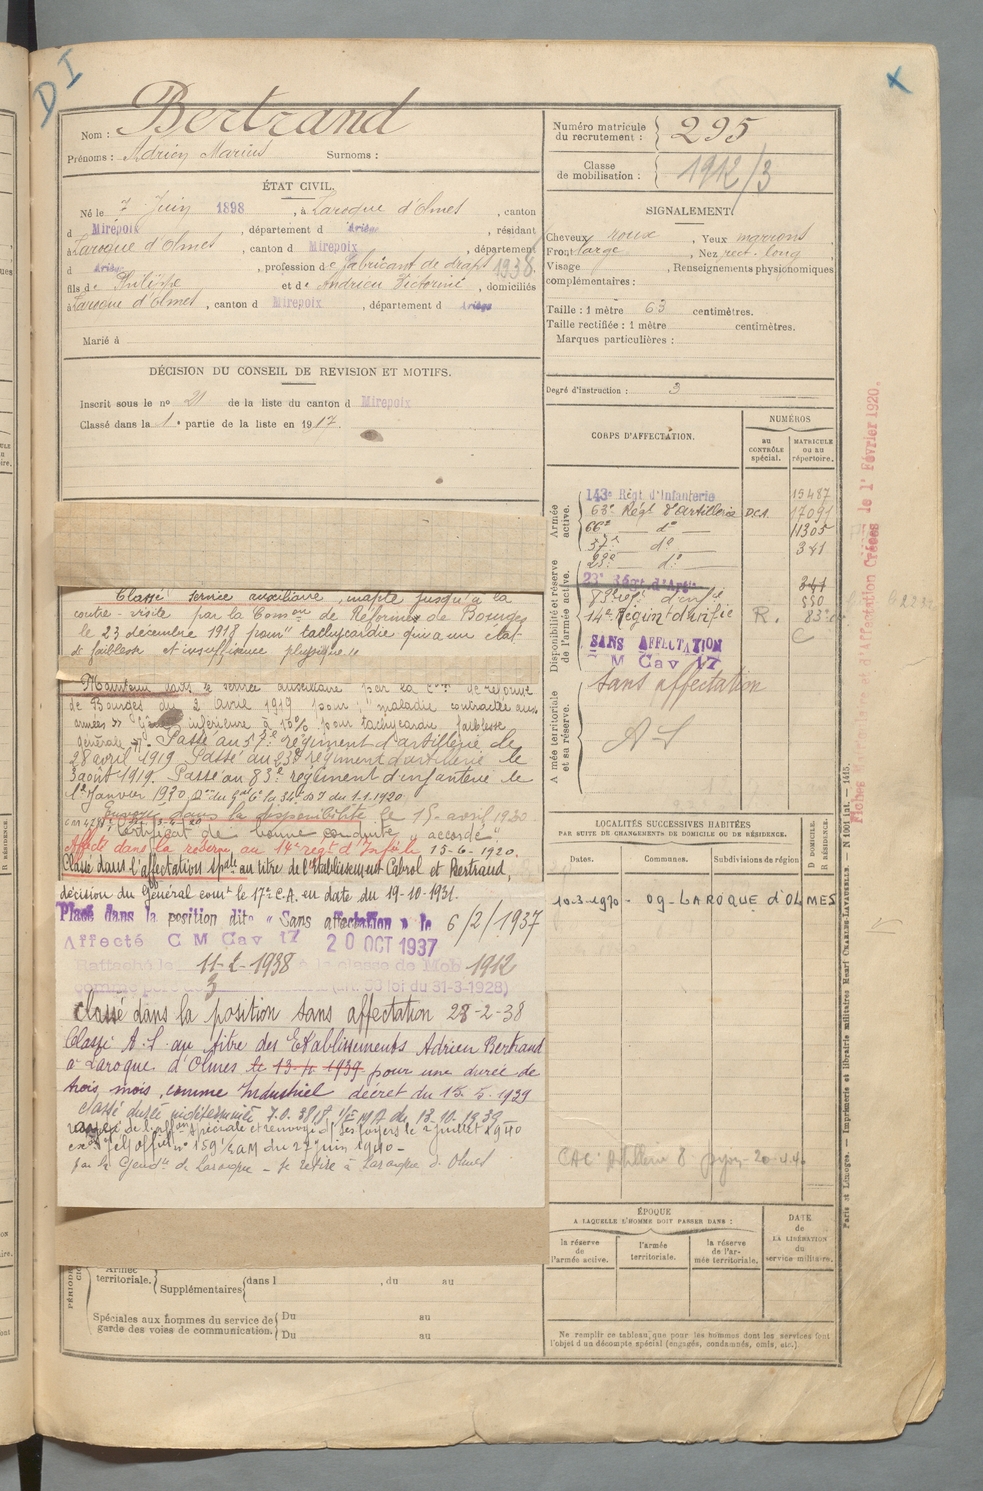 D I
Nom : Bertrand
Prénoms : Adrien Marius Surnoms :
Numéro matricule du recrutement : 295
Classe de mobilisation : 1912/3
ÉTAT CIVIL.
Né le 7 Juin 1898, à Laroque d'Olmes, canton
d Mirepoix, département d Ariège, résidant
à Laroque d'Olmes, canton d Mirepoix, département
d Ariège, profession de fabricant de draps 1938
fils de Philippe et de Andrieu Victorine, domiciliés
à Laroque d'Olmes, canton d Mirepoix, département d Ariège
Marié à
SIGNALEMENT.
Cheveux roux, Yeux marrons
Front large, Nez rect. long
Visage , Renseignements physionomiques
complémentaires :
Taille : 1 mètre 63 centimètres.
Taille rectifiée : 1 mètre centimètres.
Marques particulières :
Degré d'instruction : 3
DÉCISION DU CONSEIL DE REVISION ET MOTIFS.
Inscrit sous le nº 21 de la liste du canton d Mirepoix
Classé dans la 1e partie de la liste en 1917.
CORPS D'AFFECTATION.
NUMÉROS
AU CONTRÔLE spécial.
MATRICULE OU AU RÉPERTOIRE.
Armée active.
143e Régt d'Infanterie 15487
63e Régt d'artillerie D.C.A. 17091
66e dº 11305
37e dº 341
23e dº
Disponibilité et réserve de l'armée active.
23e Régt d'Art. 341
83e régt d'infie 550
14e Région d'infie R. 83
SANS AFFECTATION C
M Cav 17
Armée territoriale et sa réserve.
Sans affectation
A-S
Classé service auxiliaire, inapte jusqu'à la
contre-visite par la Comson de Réforme de Bourges
le 23 décembre 1918 pour "tachycardie
de faiblesse et insuffisance physique"
Maintenu dans le service auxiliaire par la Con de réforme
de Bourges du 2 avril 1919 pour : "maladie contractée aux
armées" inférieure à 10% pour tachycardie faiblesse
générale. Passé au 37e régiment d'artillerie le
28 avril 1919. Passé au 23e régiment d'artillerie le
3 août 1919. Passé au 83e régiment d'infanterie le
1er Janvier 1920 du 1.1.1920
Envoyé dans la disponibilité le 15 avril 1920
"Certificat de bonne conduite" accordé"
Affecté dans la réserve au 14e régt d'Infie le 15-6-1920.
Classé dans l'affectation spale au titre de l'Etablissement Cabrol et Bertrand,
décision du Général comt le 17e C.A. en date du 19-10-1931.
Placé dans la position dite « Sans affectation » le 6/2/1937
Affecté C M Cav 17 20 OCT 1937
Rattaché le 11-2-1938 à la classe de Mob 1912
comme père de 3 (Art. 58 loi du 31-3-1928)
classé dans la position sans affectation 28-2-38
Classé A.S. au titre des Etablissements Adrien Bertrand
à Laroque d'Olmes le 13-4-1939 pour une durée de
trois mois, comme Industriel décret du 15.5.1939
classé durée indéterminée 7.0. 3818 1/EMA du 13.10.1939
rayé de l'affon spéciale et renvoyé ds ses foyers le 2 juillet 1940
nº 159 1/EAM du 27 juin 1940 -
par la Gendie de Laroque - se retire à Laroque d'Olmes
LOCALITÉS SUCCESSIVES HABITÉES
PAR SUITE DE CHANGEMENTS DE DOMICILE OU DE RÉSIDENCE.
Dates. Communes. Subdivisions de région
D DOMICILE. R RÉSIDENCE.
10-3-1970 - 09-LAROQUE d'OLMES
CAC Artillerie 8 20-4-40
ÉPOQUE
A LAQUELLE L'HOMME DOIT PASSER DANS :
la réserve de l'armée active.
l'armée territoriale.
la réserve de l'armée territoriale.
DATE de LA LIBÉRATION du service militaire.
Ne remplir ce tableau que pour les hommes dont les services font
l'objet d'un décompte spécial (engagés, condamnés, omis, etc.)
Armée territoriale.
Supplémentaires dans l , du au
Spéciales aux hommes du service de garde des voies de communication.
Du au
Du au
Paris et Limoges. — Imprimerie et librairie militaires Henri CHARLES-LAVAUZELLE. — N 1001 int. — 1415.
d'Affectation Créées le 1er Février 1920.